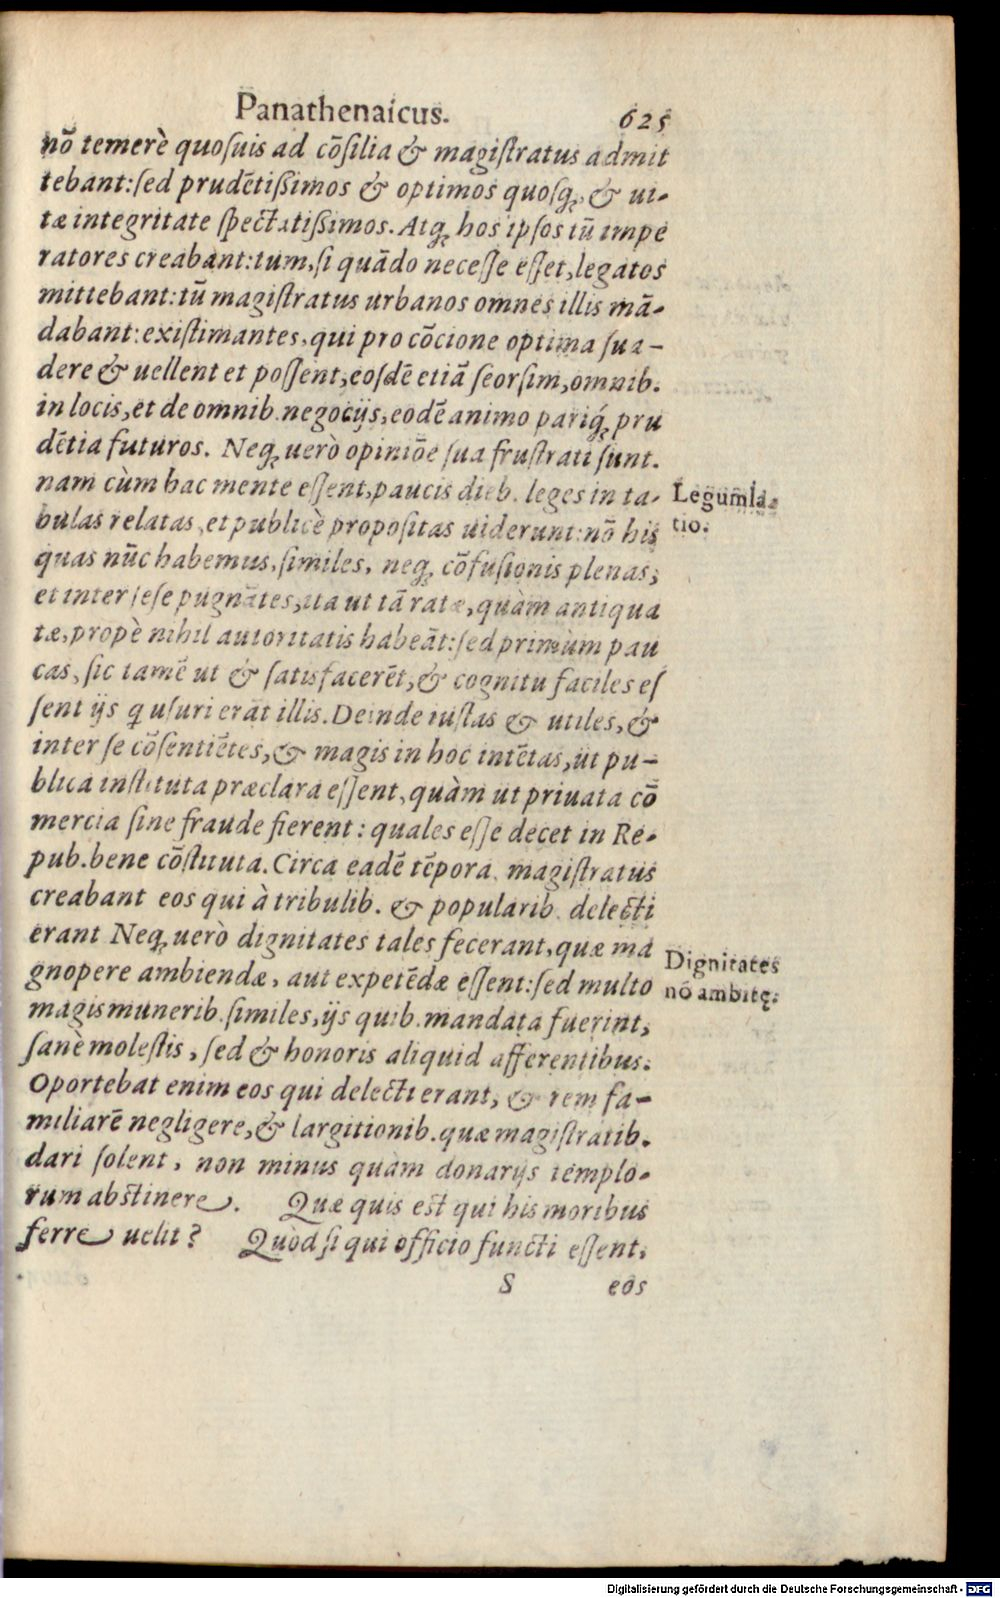 Panathenaicus. 625
nõ temerè quoſuis ad cõſilia & magiſtratus admit
tebant:ſed prudẽtiſsimos & optimos quoſq́;, & ui-
tæ integritate ſpectatiſsimos. Atq; hos ipſos tũ impe
ratores creabant:tum,ſi quãdo neceſſe eſſet,legatos
mittebant:tũ magiſtratus urbanos omnes illis mã-
dabant:exiſtimantes,qui pro cõcione optima ſua-
dere & uellent et poſſent,eoſdẽ etiã ſeorſim,omnib.
in locis,et de omnib.negocijs,eodẽ animo pariq́; pru
dẽtia futuros. Neq; uerò opiniõe ſua fruſtrati ſunt.
nam cùm hac mente eſſent,paucis dieb. leges in ta-
bulas relatas,et publicè propoſitas uiderunt:nõ his
quas nũc habemus,ſimiles, neq; cõfuſionis plenas,
et inter ſeſe pugnãtes,ita ut tã ratæ,quàm antiqua
tæ,propè nihil autoritatis habeãt:ſed primùm pau
cas,ſic tamẽ ut & ſatisfacerẽt,& cognitu faciles eſ
ſent ijs q uſuri erãt illis.Deinde iuſtas & utiles,&
inter ſe cõſentiẽtes,& magis in hoc intẽtas,ut pu-
blica inſtituta præclara eſſent,quàm ut priuata cõ
mercia ſine fraude fierent: quales eſſe decet in Re-
pub.bene cõſtituta. Circa eadẽ tẽpora magiſtratus
creabant eos qui à tribulib. & popularib. delecti
erant Neq; uerò dignitates tales fecerant,quæ ma
gnopere ambiendæ, aut expetẽdæ eſſent:ſed multo
magis munerib.ſimiles,ijs quib.mandata fuerint,
ſanè moleſtis, ſed & honoris aliquid afferentibus.
Oportebat enim eos qui delecti erant, & rem fa-
miliarẽ negligere,& largitionib.quæ magiſtratib.
dari ſolent, non minus quàm donarijs templo-
rum abſtinere. Quæ quis est qui his moribus
ferre uelit? Quòd ſi qui officio functi eſſent,
S eos
Legum̃la-
tio.
Dignitates
nõ ambitę.
Digitalisierung gefördert durch die Deutsche Forschungsgemeinschaft - DFG